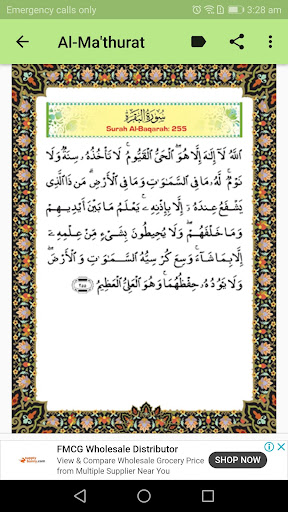 Emergency calls only
3:28 am
Al-Ma'thurat
سُورَةُ البَقَرَة
Surah Al-Baqarah: 255
اللَّهُ لَا إِلَٰهَ إِلَّا هُوَ ۚ الْحَيُّ الْقَيُّومُ ۚ لَا تَأْخُذُهُ سِنَةٌ وَلَا
نَوْمٌ ۚ لَهُ مَا فِي السَّمَٰوَٰتِ وَمَا فِي الْأَرْضِ ۗ مَن ذَا الَّذِي
يَشْفَعُ عِندَهُ إِلَّا بِإِذْنِهِ ۚ يَعْلَمُ مَا بَيْنَ أَيْدِيهِمْ
وَمَا خَلْفَهُمْ ۖ وَلَا يُحِيطُونَ بِشَيْءٍ مِّنْ عِلْمِهِ
إِلَّا بِمَا شَاءَ ۚ وَسِعَ كُرْسِيُّهُ السَّمَٰوَٰتِ وَالْأَرْضَ ۖ
وَلَا يَئُودُهُ حِفْظُهُمَا ۚ وَهُوَ الْعَلِيُّ الْعَظِيمُ ٢٥٥
FMCG Wholesale Distributor
View & Compare Wholesale Grocery Price
from Multiple Supplier Near You
SIGN UP